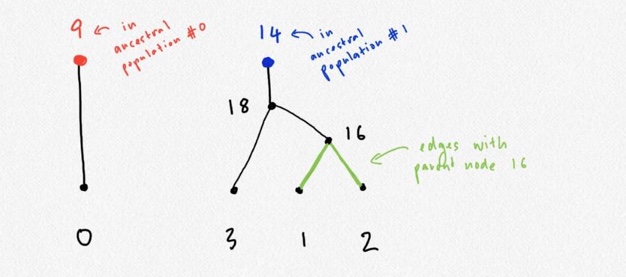 9 ← in
ancestral
population #0
14 ← in
ancestral
population #1
18
16
edges with
parent node 16
0
3
1
2